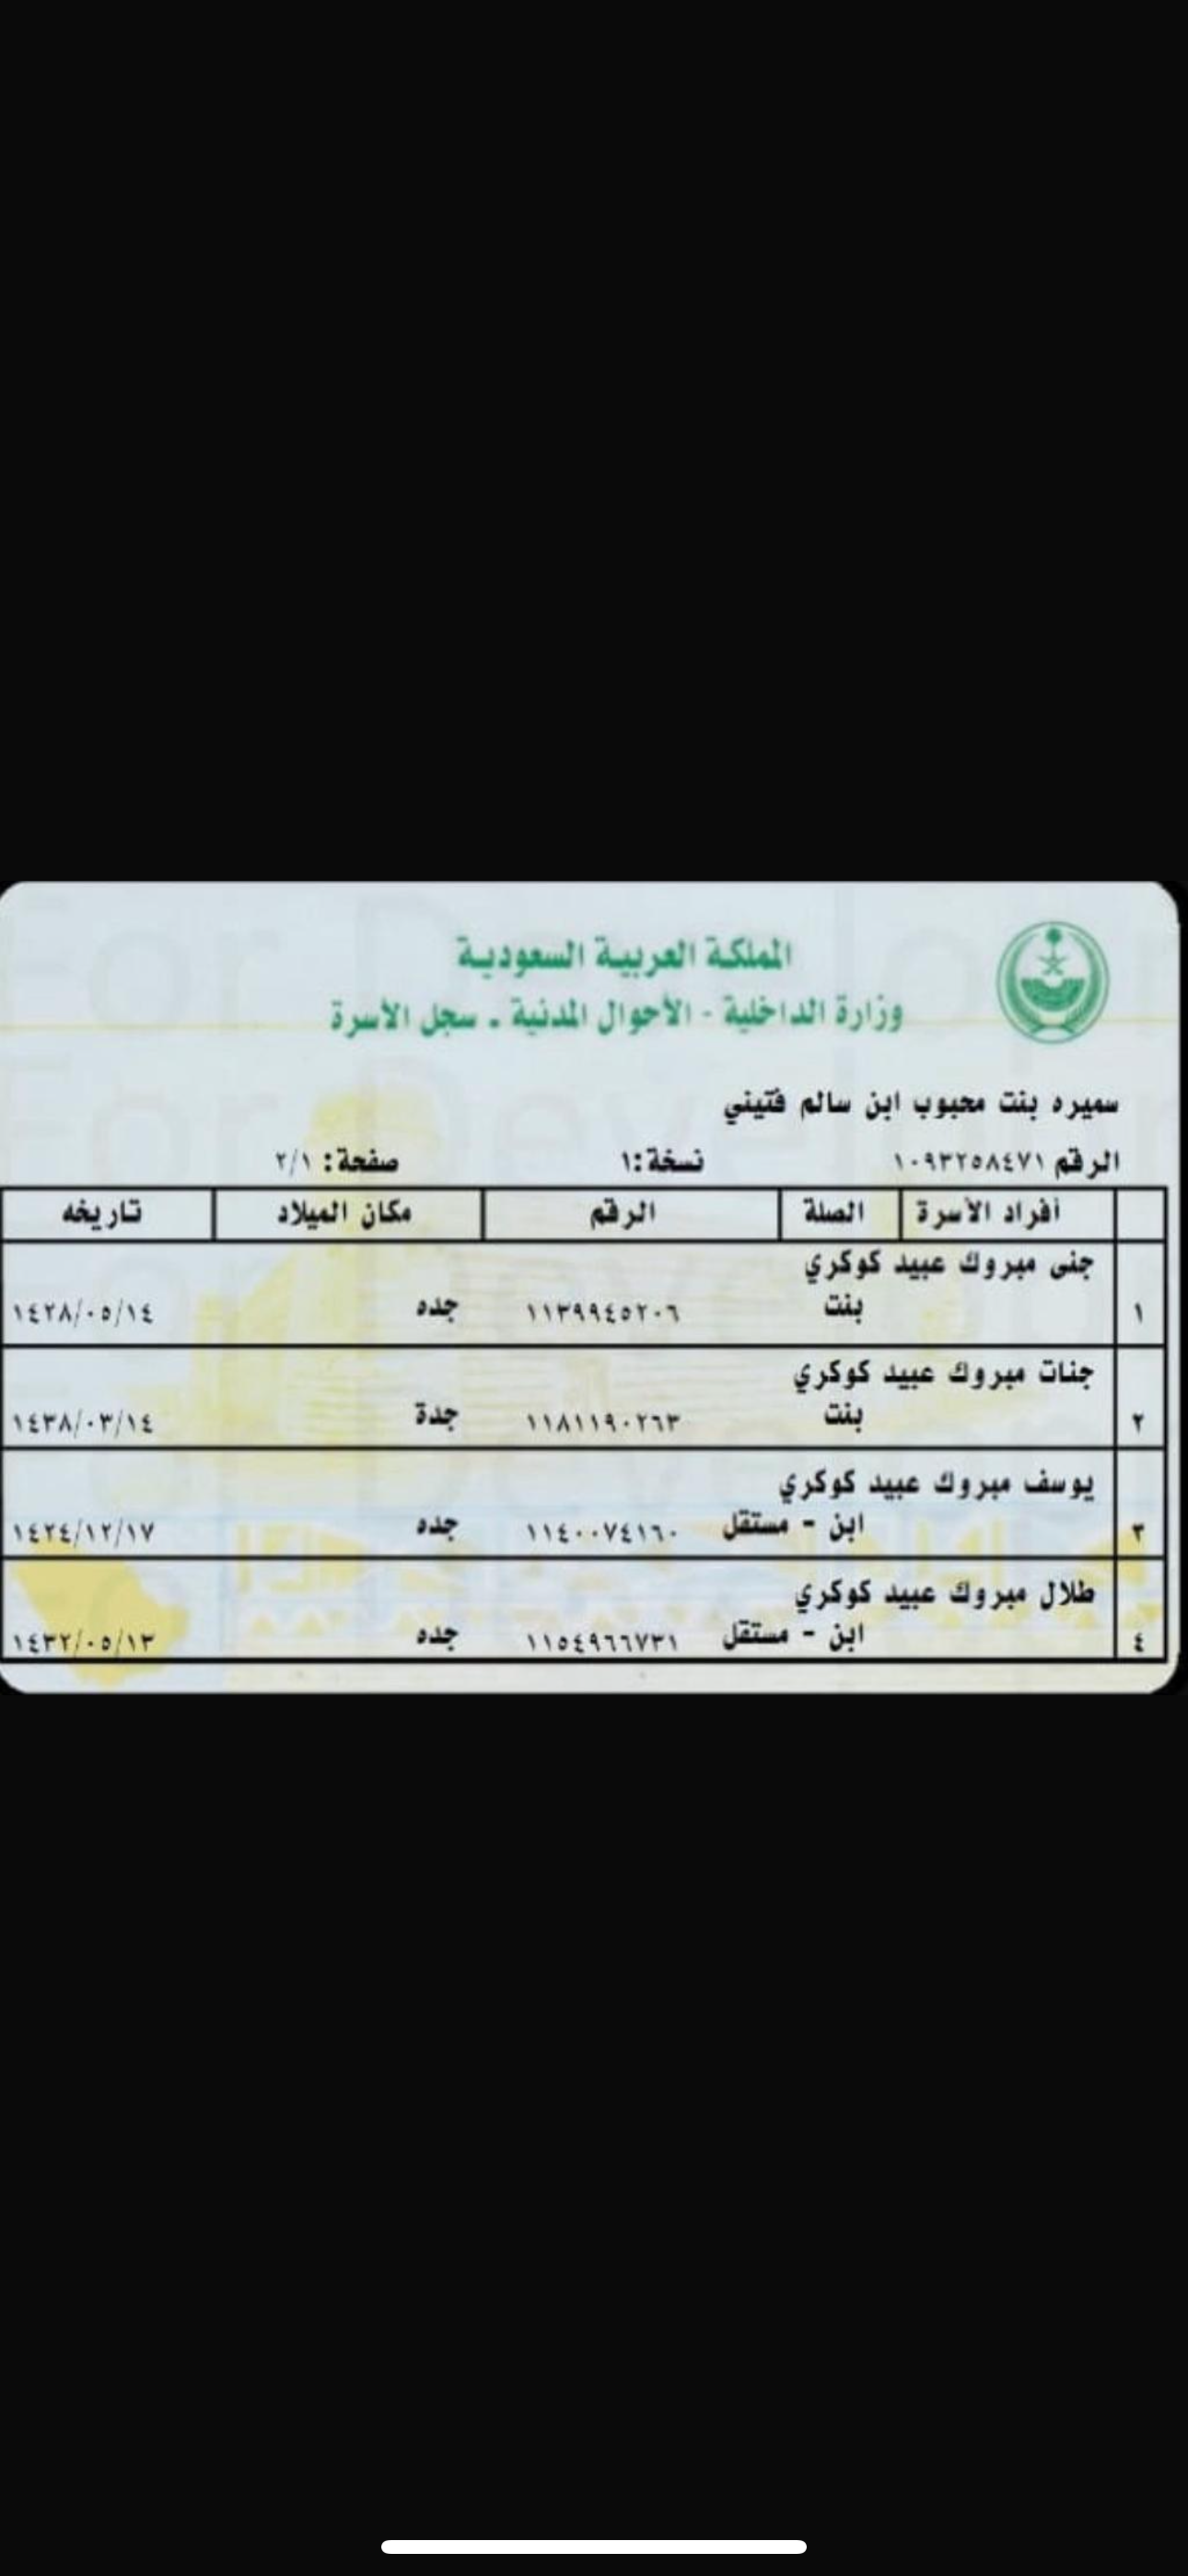 المملكة العربية السعودية
وزارة الداخلية - الأحوال المدنية - سجل الأسرة
سميره بنت محبوب ابن سالم فتيني
الرقم ١٠٩٣٢٥٨٤٧١ نسخة:١ صفحة: ٢/١
أفراد الأسرة الصلة الرقم مكان الميلاد تاريخه
جنى مبروك عبيد كوكري
١ بنت ١١٣٩٩٤٥٢٠٦ جده ١٤٢٨/٠٥/١٤
جنات مبروك عبيد كوكري
٢ بنت ١١٨١١٩٠٢٦٣ جدة ١٤٣٨/٠٣/١٤
يوسف مبروك عبيد كوكري
٣ ابن - مستقل ١١٤٠٠٧٤١٦٠ جده ١٤٢٤/١٢/١٧
طلال مبروك عبيد كوكري
٤ ابن - مستقل ١١٥٤٩٦٦٧٣١ جده ١٤٣٢/٠٥/١٣